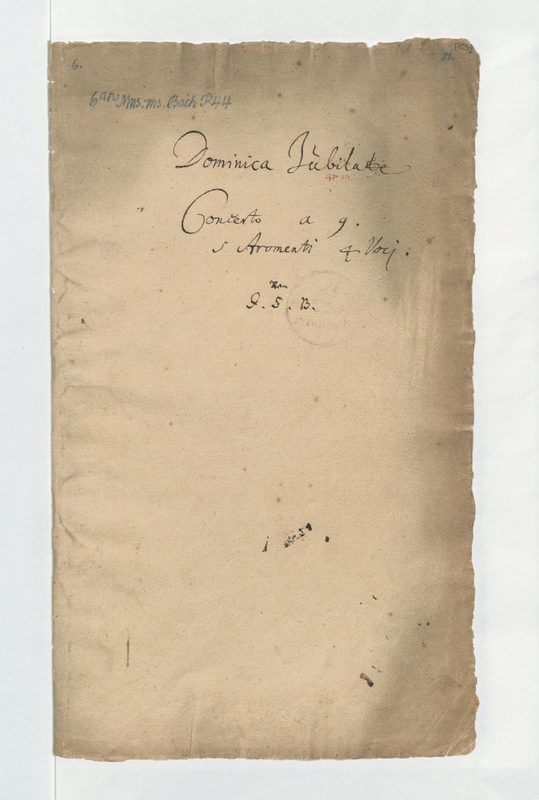 6.
11.
6 an Mus. ms. Bach P 44
Dominica Jubilate
Concerto a 9.
5 Stromenti 4 Voci.
J. S. B.